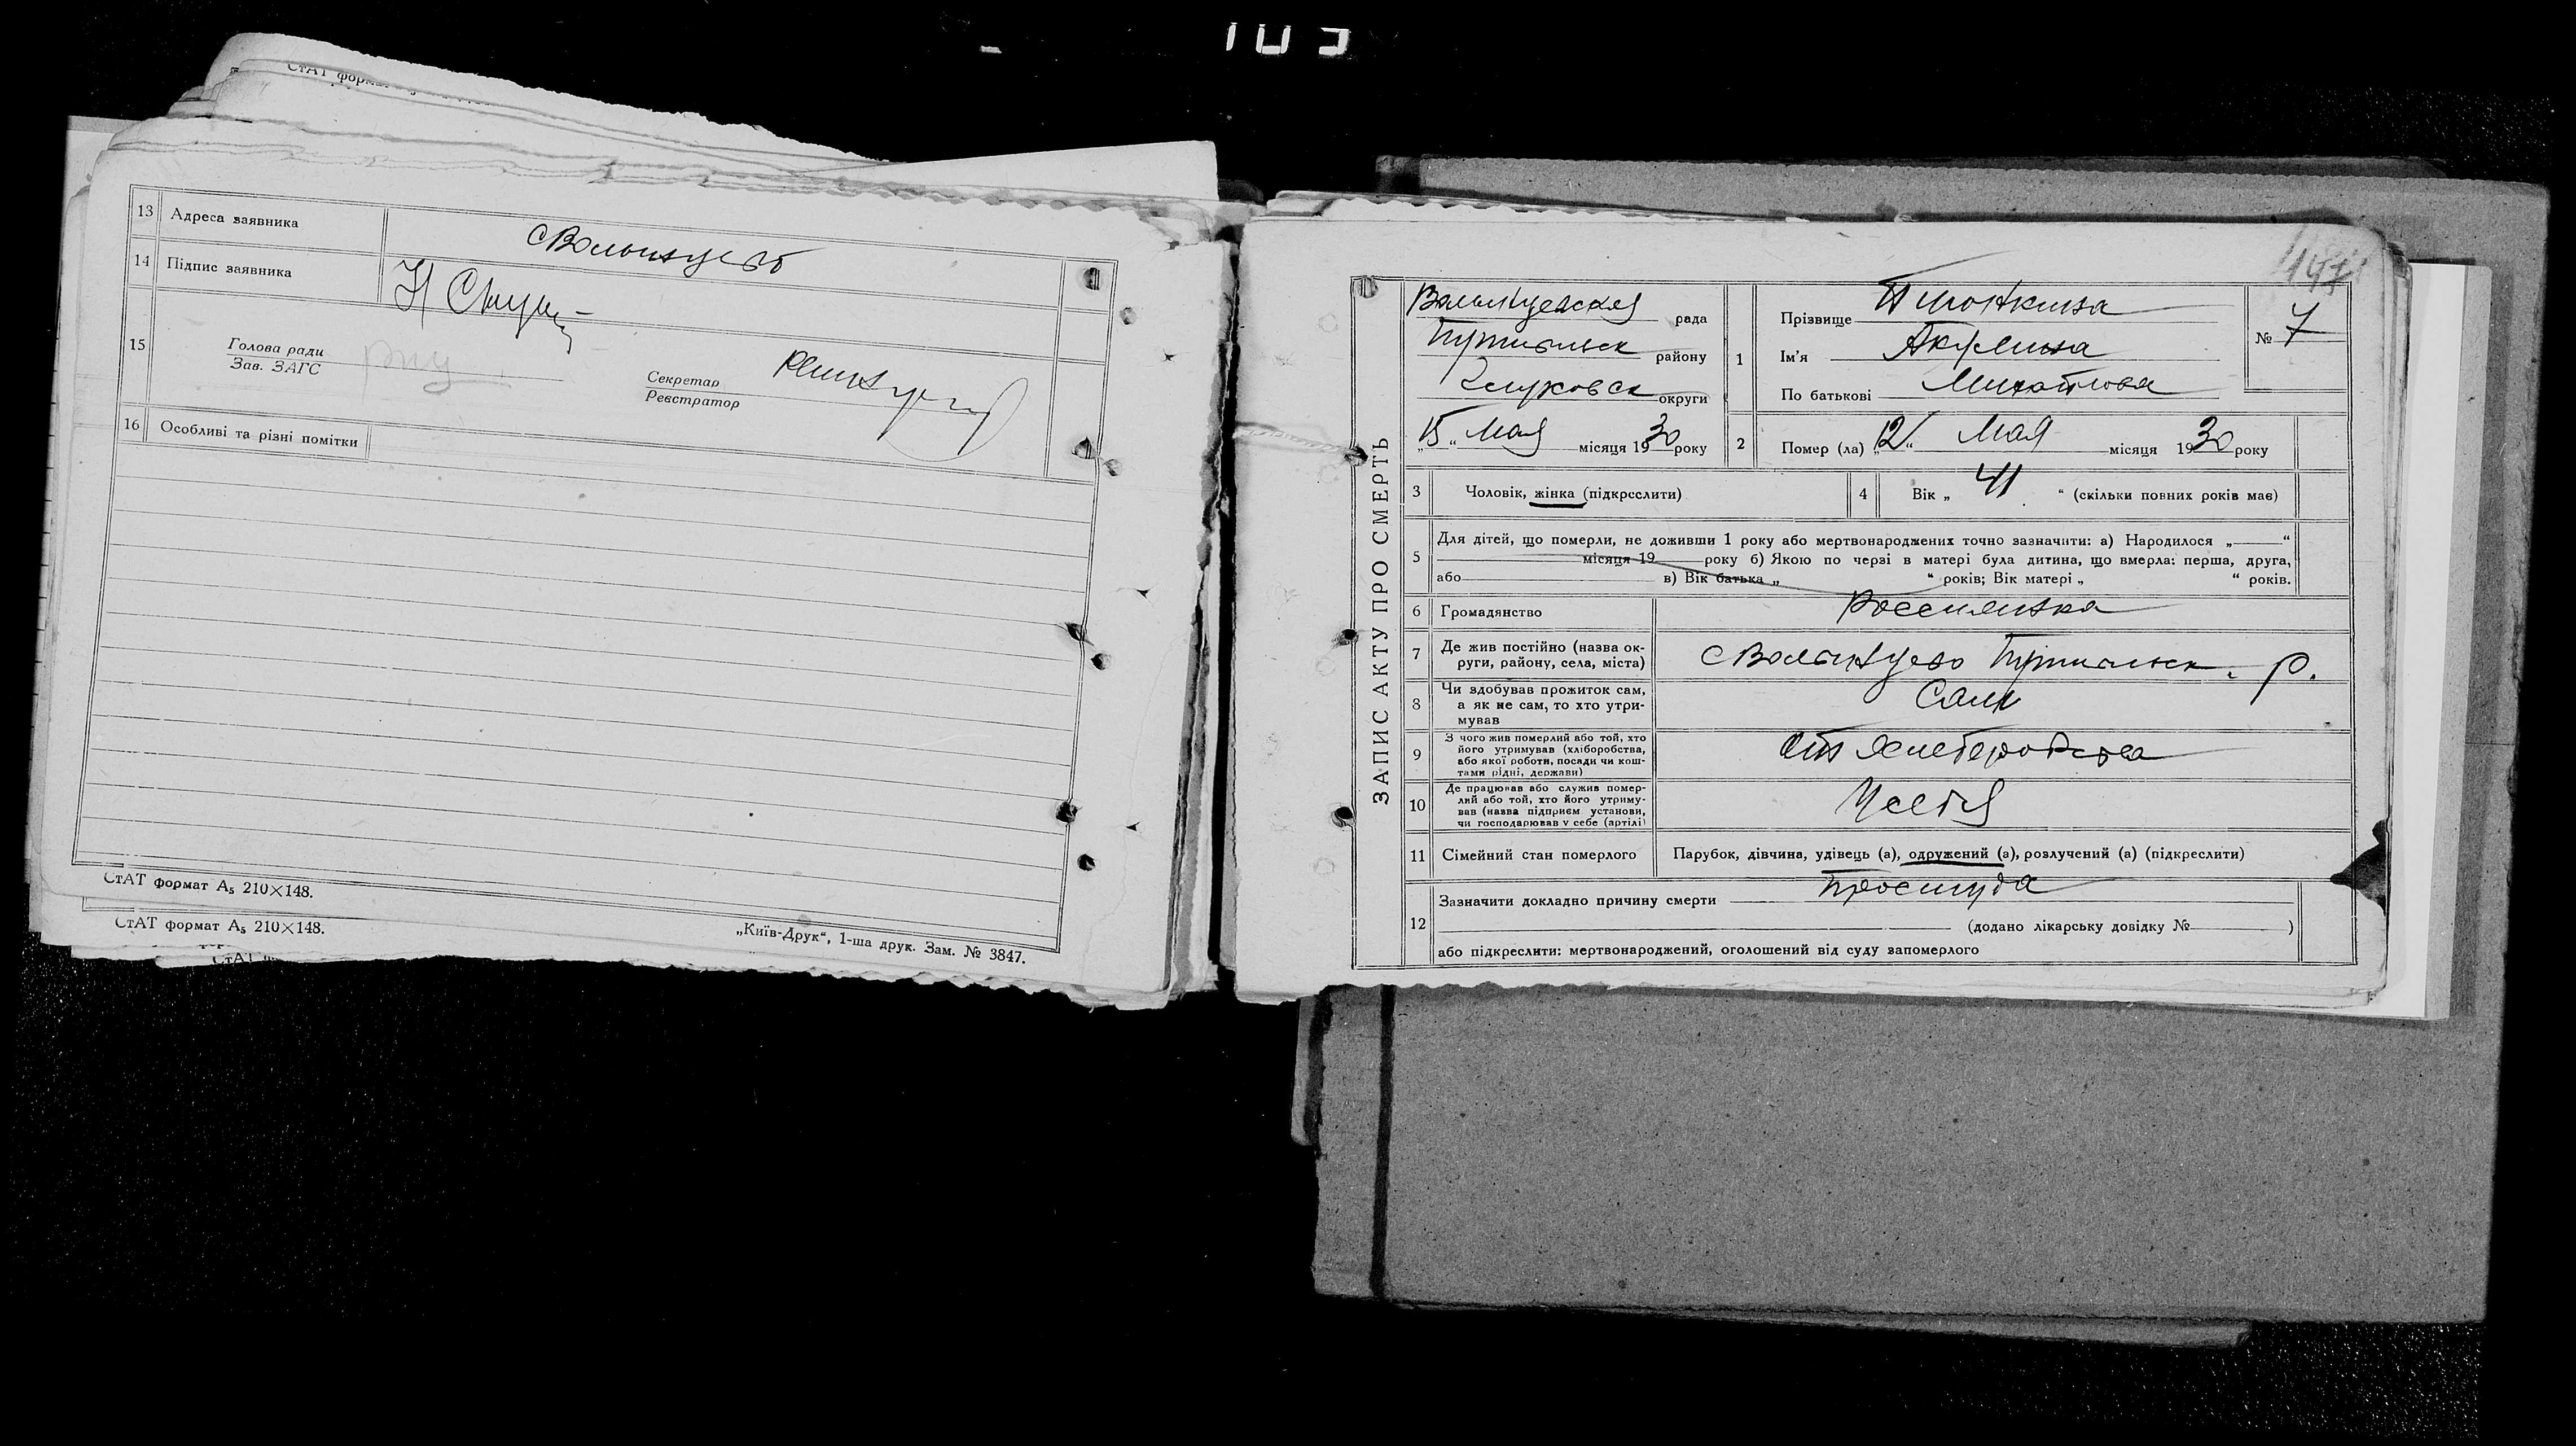 СтАТ формат
13 Адреса заявника с Волынцево
14 Підпис заявника
15 Голова ради
Зав. ЗАГС
Секретар
Реєстратор
16 Особливі та різні помітки
СтАТ формат А₅ 210×148.
СтАТ формат А₅ 210×148.
„Київ-Друк“, 1-ша друк. Зам. № 3847.
СтАТ
147
ЗАПИС АКТУ ПРО СМЕРТЬ
Волынцевская рада
Путивльск району
Глуховск округи
„15“ Мая місяця 1930 року
1 Прізвище
Ім'я Акулина
По батькові Михайлова
№ 7
2 Помер (ла) „12“ Мая місяця 1930 року
3 Чоловік, жінка (підкреслити)
4 Вік „41“ (скільки повних років має)
5 Для дітей, що померли, не доживши 1 року або мертвонароджених точно зазначити: а) Народилося „ “
місяця 19 року б) Якою по черзі в матері була дитина, що вмерла: перша, друга,
або в) Вік батька „ “ років; Вік матері „ “ років.
6 Громадянство Россиянка
7 Де жив постійно (назва ок-
руги, району, села, міста) с Волынцево Путивльск. р.
8 Чи здобував прожиток сам,
а як не сам, то хто утри-
мував Сам
9 З чого жив померлий або той, хто
його утримував (хліборобства,
або якої роботи, посади чи кош-
тами рідні, держави) от хлеборобства
10 Де працював або служив помер-
лий або той, хто його утриму-
вав (назва підприєм установи,
чи господарював у себе (артілі) У себя
11 Сімейний стан померлого Парубок, дівчина, удівець (а), одружений (а), розлучений (а) (підкреслити)
12 Зазначити докладно причину смерти Простуда
(додано лікарську довідку № )
або підкреслити: мертвонароджений, оголошений від суду запомерлого